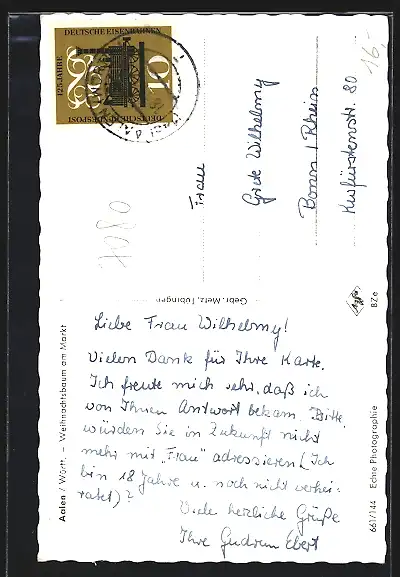 125 JAHRE
DEUTSCHE EISENBAHNEN
10
DEUTSCHE BUNDESPOST
16,-
Frau
Grete Wilhelmy
Bonn / Rhein
Kurfürstenstr. 80
7080
Gebr. Metz, Tübingen
Agfa
BZe
Aalen / Württ. – Weihnachtsbaum am Markt
661/144 Echte Photographie
Liebe Frau Wilhelmy!
Vielen Dank für Ihre Karte.
Ich freute mich sehr, daß ich
von Ihnen Antwort bekam. Bitte
würden Sie in Zukunft nicht
mehr mit „Frau" adressieren (Ich
bin 18 Jahre u. noch nicht verhei-
ratet)?
Viele herzliche Grüße
Ihre Gudrun Ebert